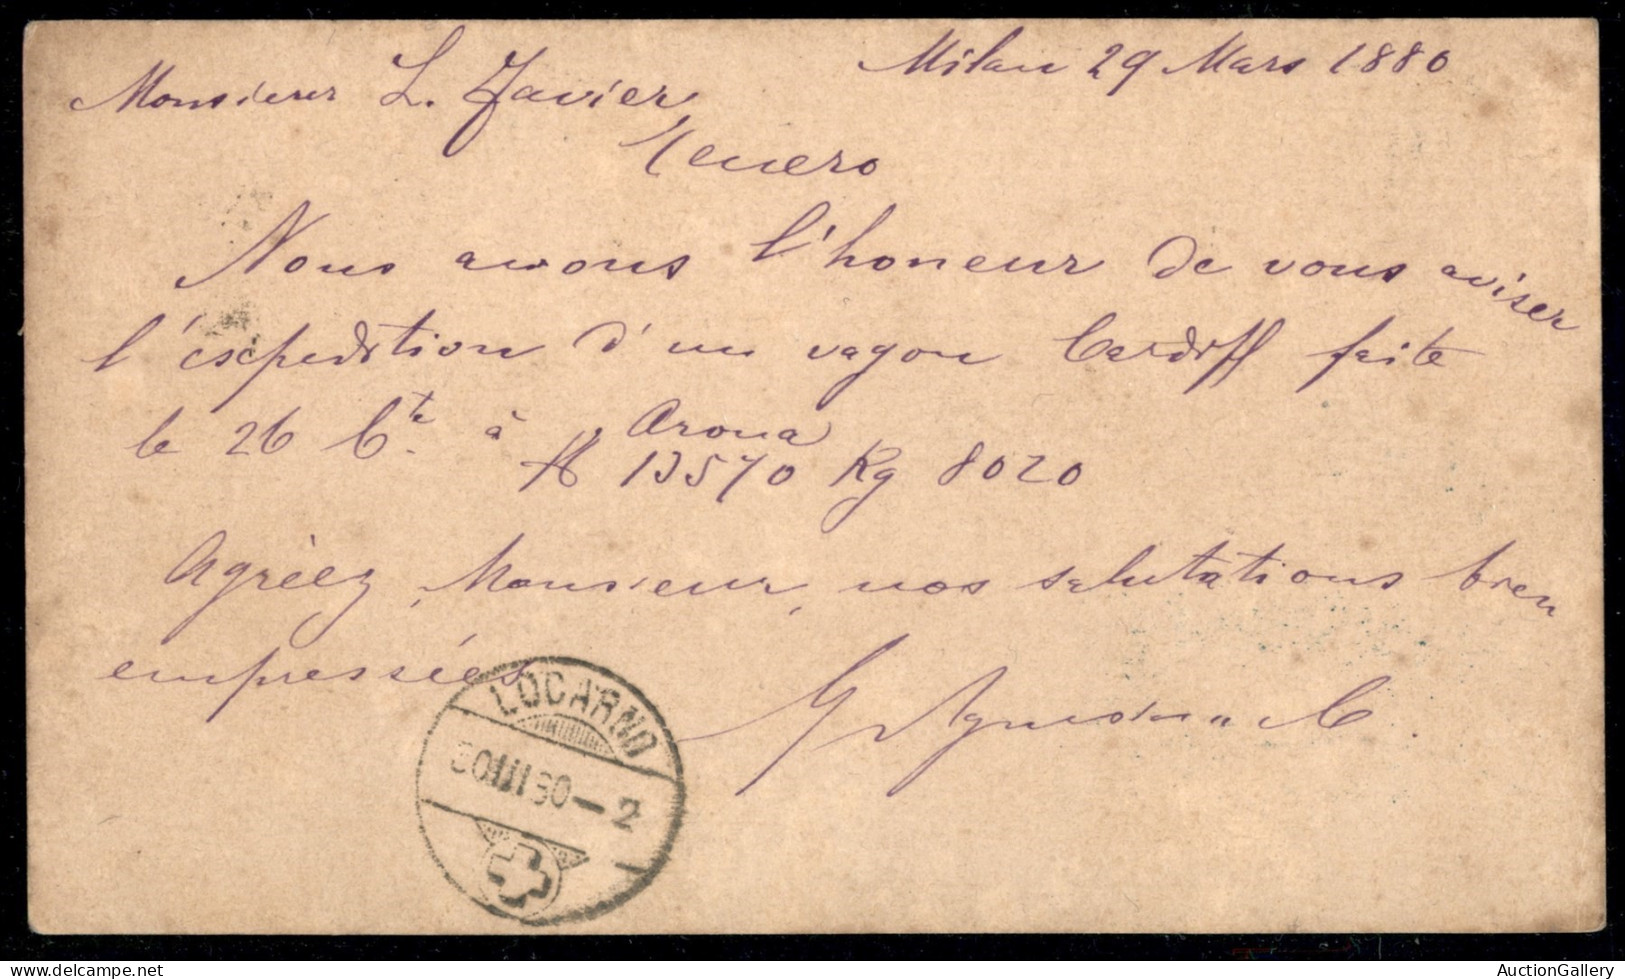 Milan 29 Mars 1880
Monsieur L. Xavier
Tenero
Nous avons l'honeur de vous aviser
l'éxpedition d'un vagon Cardiff faite
le 26 Ct. à Arona
13570 Kg 8020
Agréez, Monsieur, nos salutations bien
empressées
LOCARNO
30 III 80 — 2
AuctionGallery